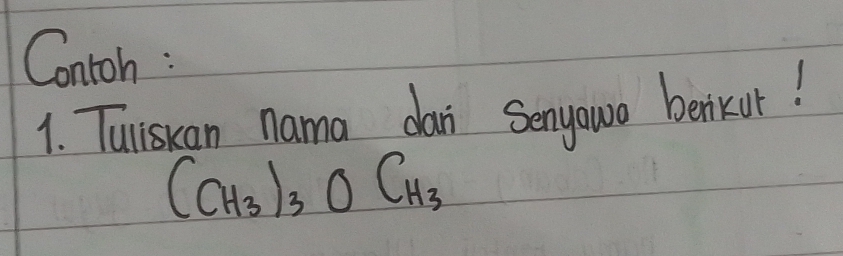 Contoh :
1. Tuliskan nama dari Senyawa berikut !
(CH3)3 O CH3